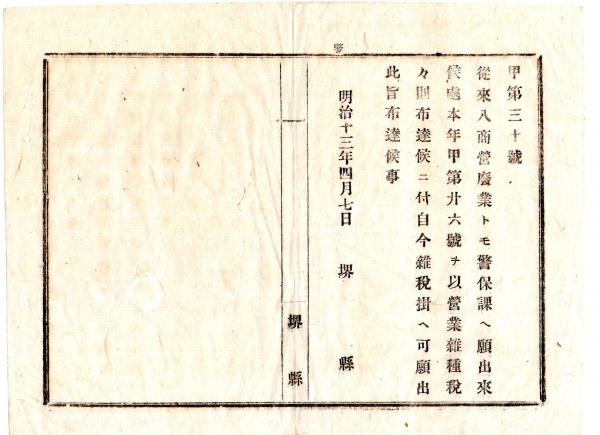 甲第三十號
從來八商營廢業トモ警保課ヘ願出來
候處本年甲第廿六號ヲ以營業雜種稅
々則布達候ニ付自今雜稅掛ヘ可願出
此旨布達候事
明治十三年四月七日 堺縣
堺縣